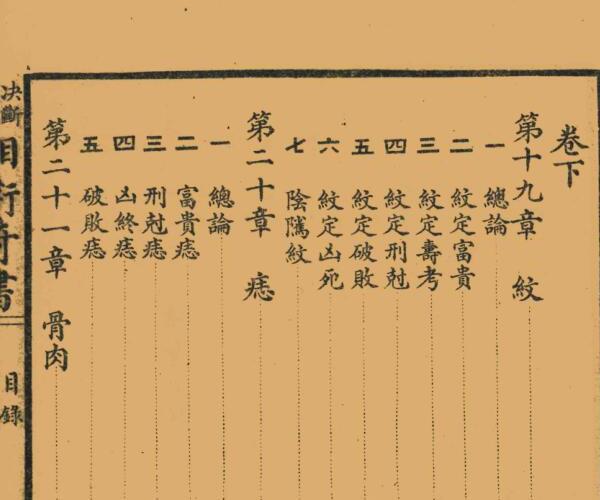 卷下
第十九章 紋
一 總論
二 紋定富貴
三 紋定壽考
四 紋定刑尅
五 紋定破敗
六 紋定凶死
七 陰騭紋
第二十章 痣
一 總論
二 富貴痣
三 刑尅痣
四 凶終痣
五 破敗痣
第二十一章 骨肉
決斷相術奇書
目錄